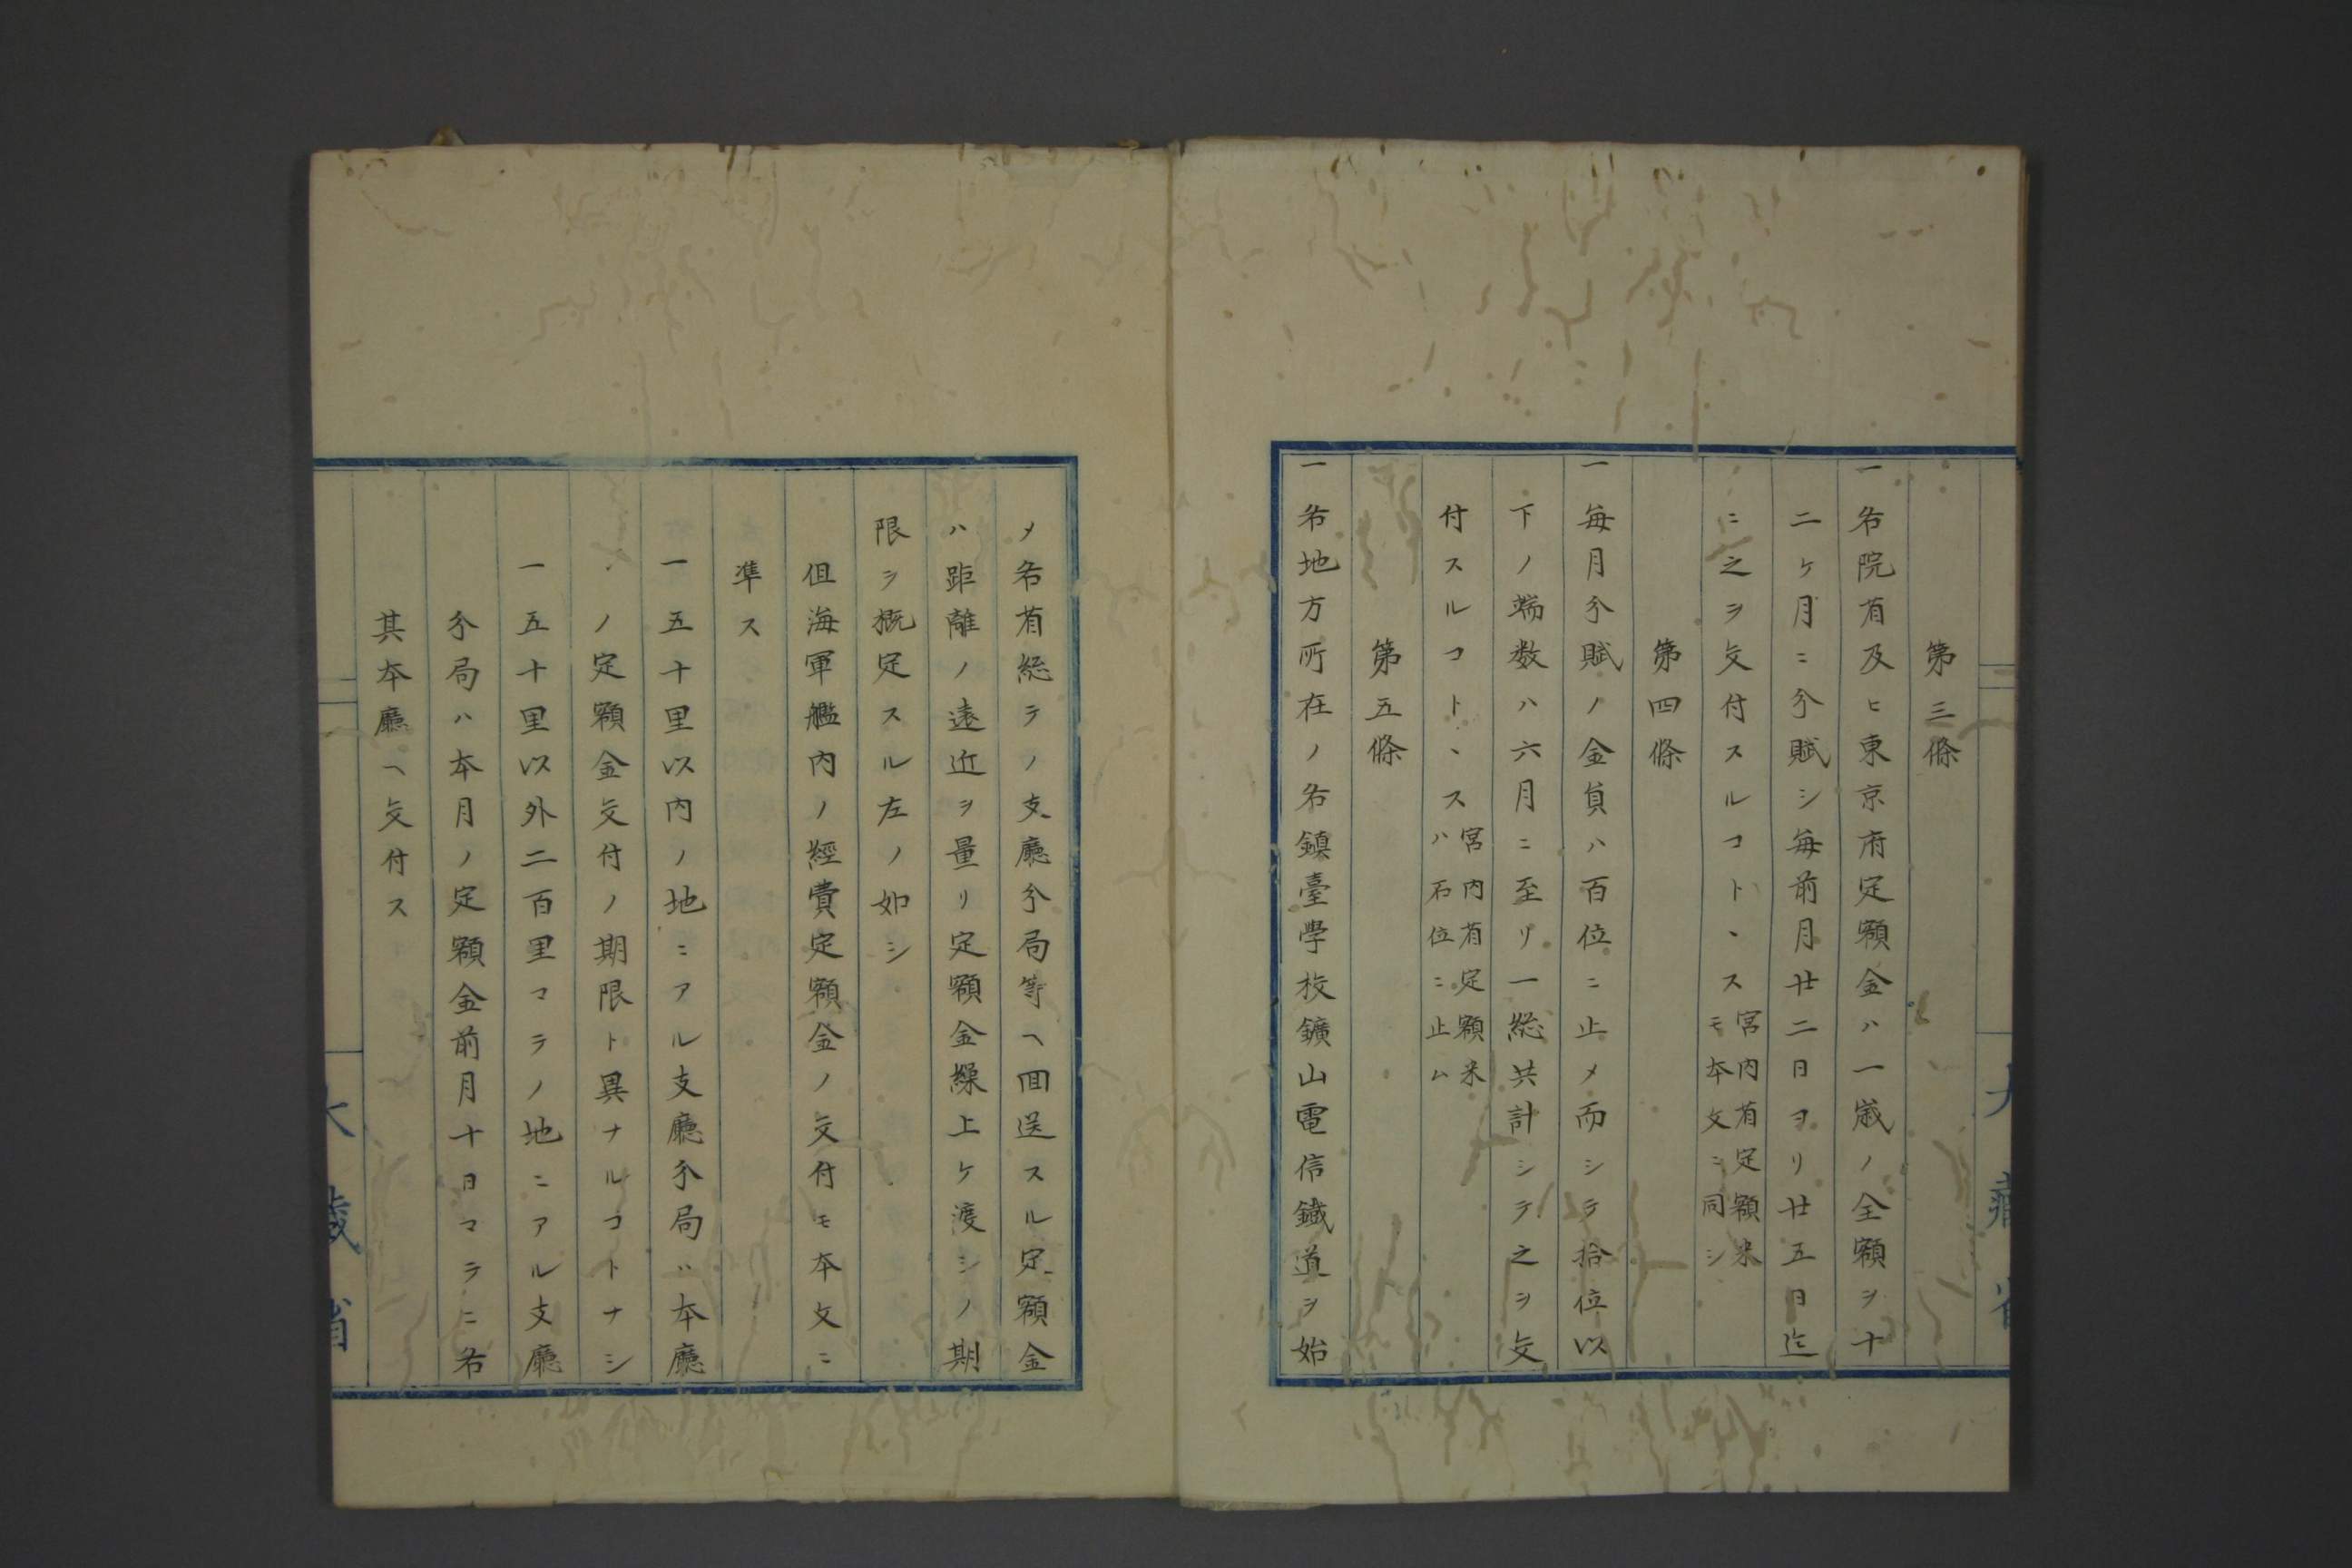 第三條
一各院省及ヒ東京府定額金ハ一歳ノ全額ヲ十
二ケ月ニ分賦シ毎前月廿二日ヨリ廿五日迄
ニ之ヲ交付スルコトヽス宮内省定額米モ本文ニ同シ
第四條
一毎月分賦ノ金員ハ百位ニ止メ而シテ拾位以
下ノ端数ハ六月ニ至リ一総共計シテ之ヲ交
付スルコトヽス宮内省定額米ハ石位ニ止ム
第五條
一各地方所在ノ各鎮臺學校鑛山電信鐵道ヲ始
メ各省総テノ支廳分局等ヘ回送スル定額金
ハ距離ノ遠近ヲ量リ定額金繰上ケ渡シノ期
限ヲ概定スル左ノ如シ
但海軍艦内ノ經費定額金ノ交付モ本文ニ
準ス
一五十里以内ノ地ニアル支廳分局ハ本廳
ノ定額金交付ノ期限ト異ナルコトナシ
一五十里以外二百里マテノ地ニアル支廳
分局ハ本月ノ定額金前月十日マテニ各
其本廳ヘ交付ス
大藏省